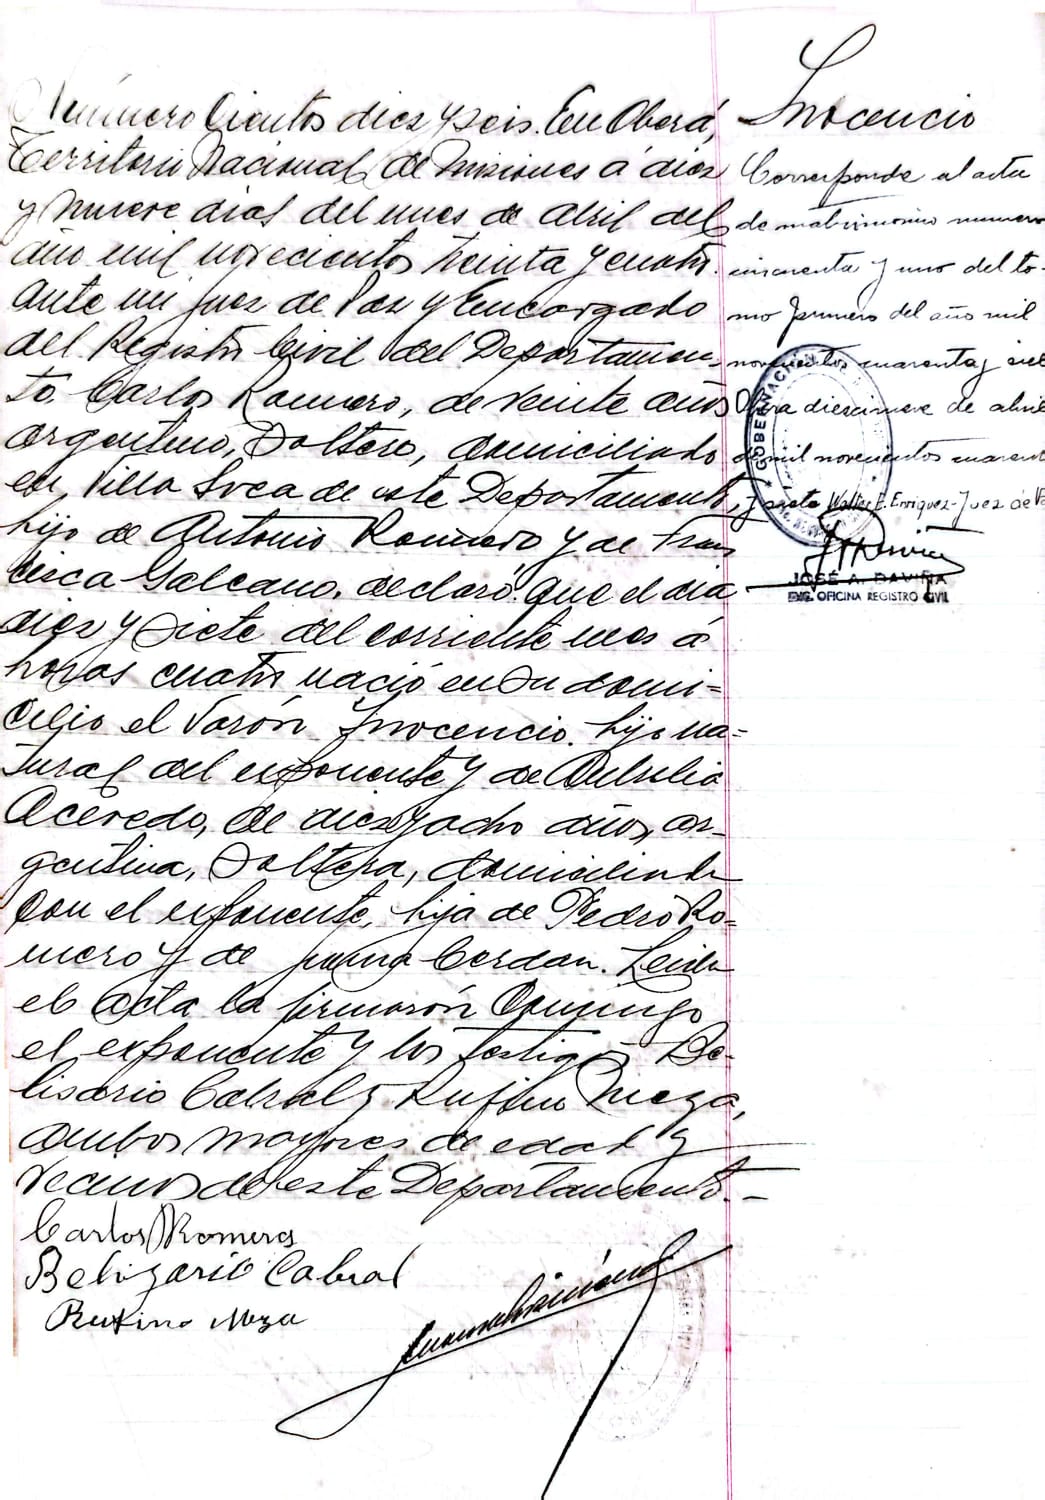 Número Cientos diez y seis. En Oberá,
Territorio Nacional de Misiones á diez
y nueve dias del mes de Abril del
año mil novecientos treinta y cuatro.
Ante mi juez de Paz y Encargado
del Registro Civil del Departamen-
to. Carlos Romero, de veinte años
argentino, Soltero, domiciliado
en, Villa Svea de este Departamento,
hijo de Antonio Romero y de Fran
cisca Galeano, declaró: Que el dia
diez y Siete del corriente mes á
horas cuatro nació en su domi=
cilio el Varón Inocencio. hijo na=
tural del exponente y de
Acevedo, de diez y ocho años, ar-
gentina, Soltera, domiciliada
con el exponente, hija de Pedro Ro-
mero y de Juana Cerdan. Leida
el acta la firmarón
el exponente y los testigos Be-
lisario Cabral y Rufino Meza,
ambos mayores de edad y
vecinos de este Departamento. -
Carlos Romero
Belizario Cabral
Rufino Meza
Inocencio
Corresponde al acta
de matrimonio numero
cincuenta y uno del to-
mo primero del año mil
novecientos cuarenta y siete
Obera diecinueve de abril
de mil novecientos cuarenta
y siete Walter E. Enriquez - Juez de Paz
GOBERNACIÓN
JOSÉ A. DAVIÑA
ENC. OFICINA REGISTRO CIVIL